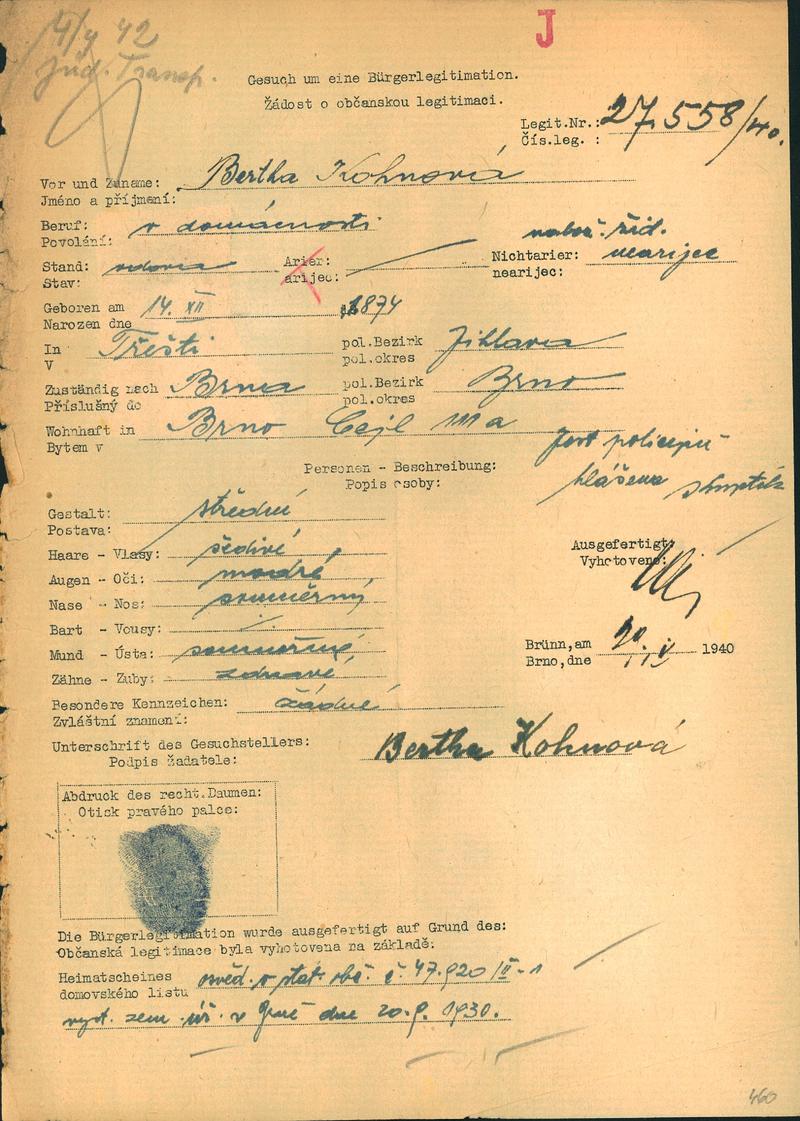 4/4 42
J
jüd. Transp.
Gesuch um eine Bürgerlegitimation.
Žádost o občanskou legitimaci.
Legit.Nr.: 27.558/40.
Čís.leg. :
Vor und Zuname: Bertha Kohnová
Jméno a příjmení:
Beruf: v domácnosti
Povolání:
nábož. žid.
Stand: vdova Arier: Nichtarier: nearijec
Stav: arijec: nearijec:
Geboren am 14. XII 1874
Narozen dne
In Třešti pol.Bezirk Jihlava
V pol.okres
Zuständig nach Brna pol.Bezirk Brno
Příslušný do pol.okres
Wohnhaft in Brno Cejl 111a
Bytem v
Personen - Beschreibung:
Popis osoby:
hlášena
Gestalt: střední
Postava:
Haare - Vlasy: šedivé
Augen - Oči: modré
Nase - Nos: souměrný
Bart - Vousy:
Mund - Ústa: souměrné
Zähne - Zuby: zdravé
Ausgefertigt:
Vyhotoveno:
Brünn, am 20. 1940
Brno, dne
Besondere Kennzeichen: žádné
Zvláštní znamení:
Unterschrift des Gesuchstellers: Bertha Kohnová
Podpis žadatele:
Abdruck des recht.Daumen:
Otisk pravého palce:
Die Bürgerlegitimation wurde ausgefertigt auf Grund des:
Občanská legitimace byla vyhotovena na základě:
Heimatscheines osvěd. o stát. obč. č. 47.920/II-1
domovského listu
vyst. zem. úř. v Brně dne 20.9.1930.
460